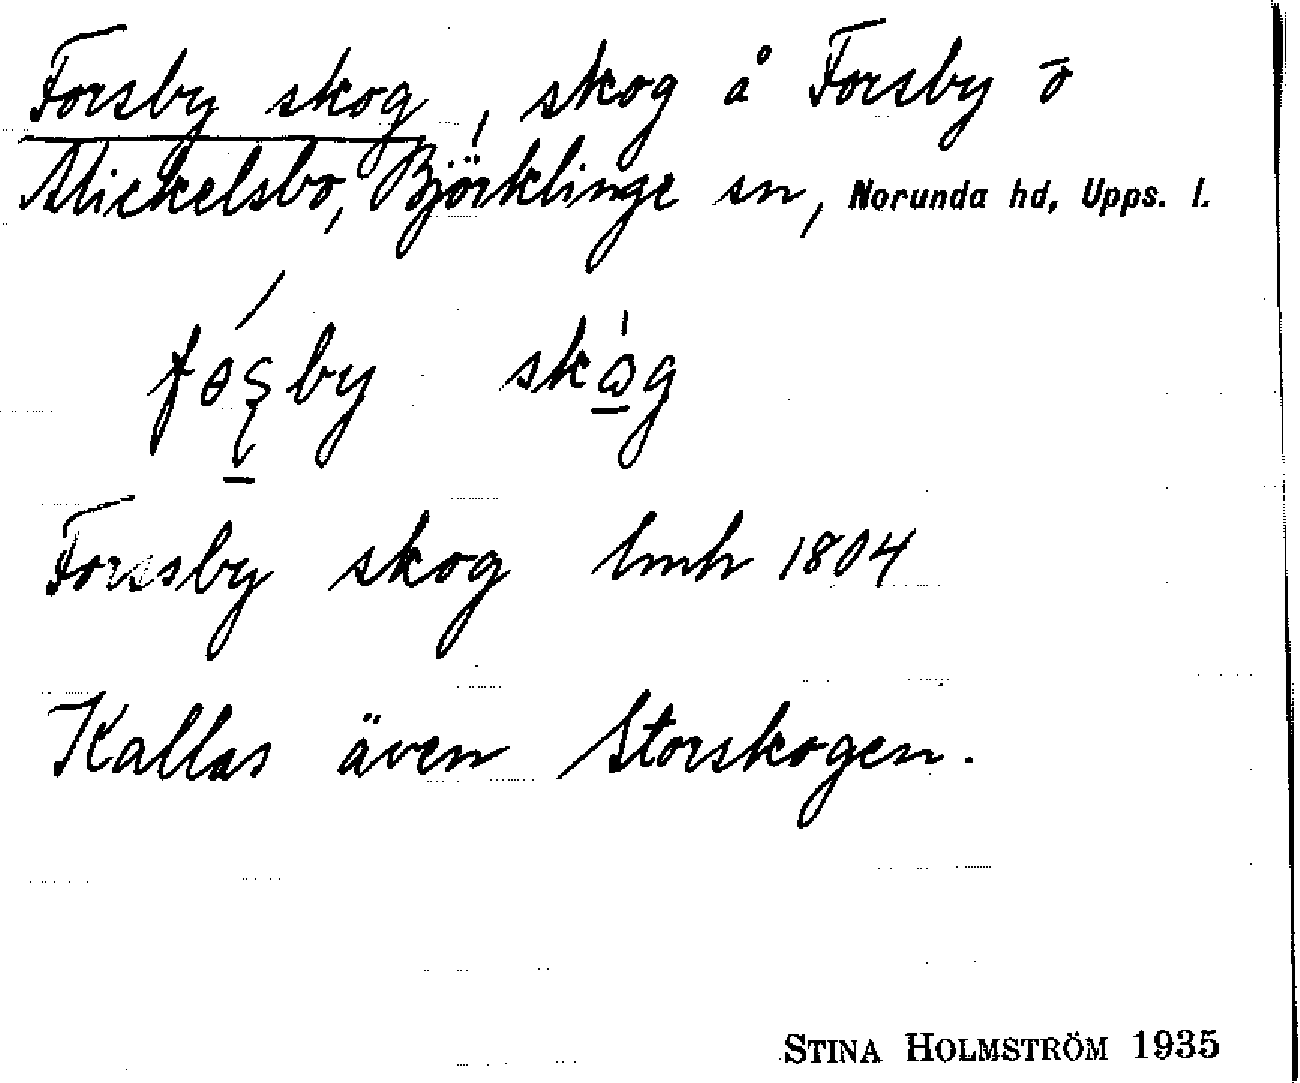 Forsby skog, skog å Forsby o
Mickelsbo, Björklinge sn, Norunda hd, Upps. l.
skog
Forssby skog lmh 1804
Kallas även Storskogen.
STINA HOLMSTRÖM 1935